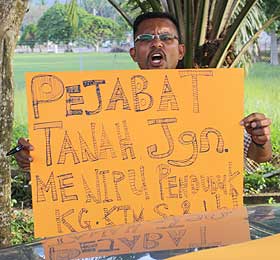 PEJABAT
TANAH Jgn.
MENIPU PENDUDUK
KG. KTM